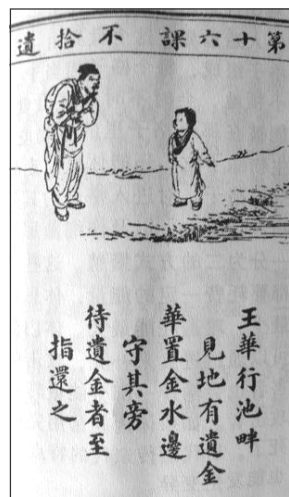 第十六課 不拾遺
王華行池畔
見地有遺金
華置金水邊
守其旁
待遺金者至
指還之